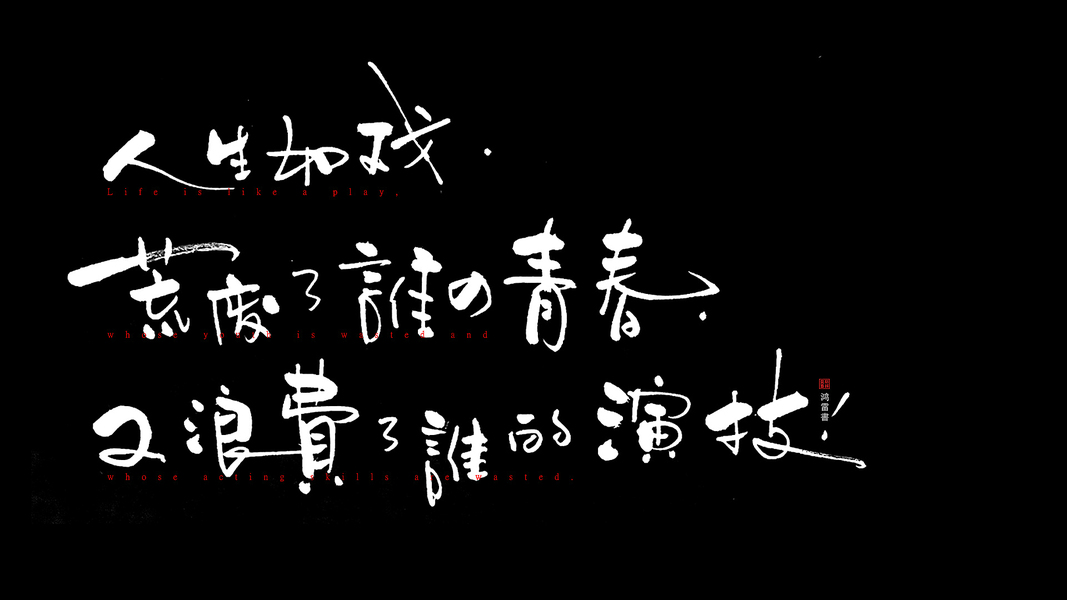 人生如戏.
Life is like a play,
荒废了誰の青春.
whose youth is wasted and
又浪費了誰的演技!
whose acting skills are wasted.
鸿雷書